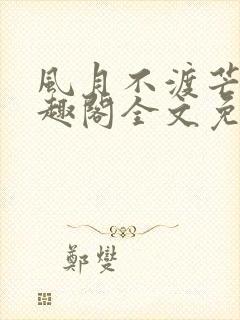 風月不渡芒
趣閣全文免
鄭燮